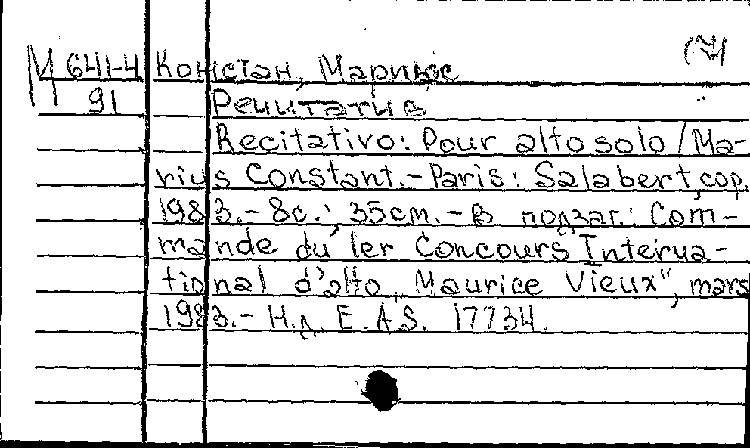 М 641-4 Констан, Мариюс
91 Речитатив
Recitativo: Pour alto solo / Ma-
rius Constant.- Paris: Salabert, cop.
1983.- 8с.; 35см.- В подзаг.: Com-
mande du 1er Concours Interna-
tional d'alto „Maurice Vieux", mars
1983.- Н.д. E.A.S. 17734.